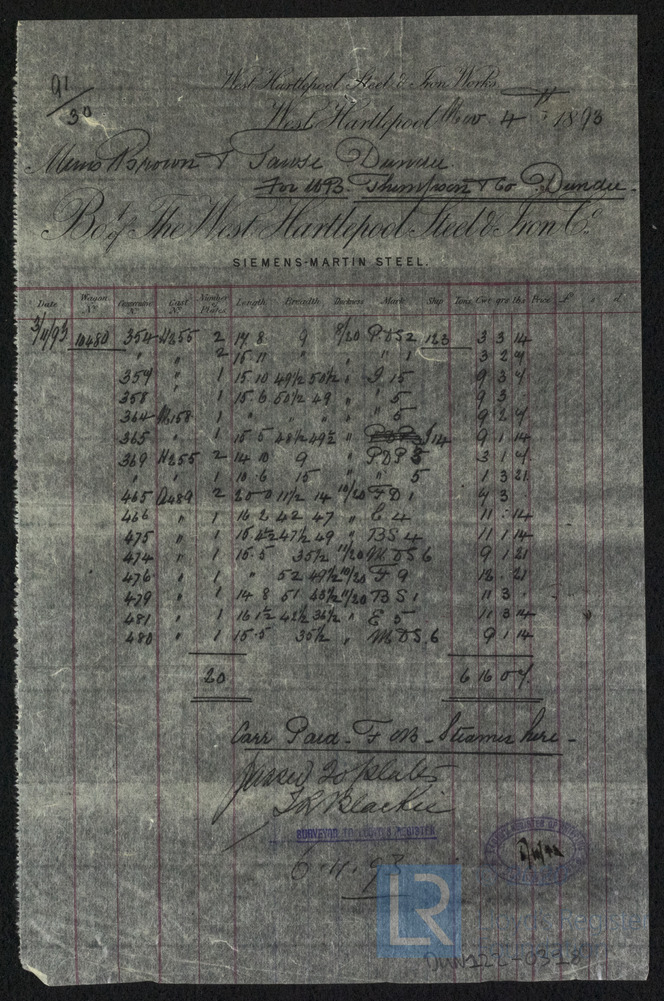 91/30
West Hartlepool Steel & Iron Works
West Hartlepool Nov 4th 1893
Messrs Brown & Tawse Dundee
For W.B. Thompson & Co Dundee.
Bo't of The West Hartlepool Steel & Iron Co.
SIEMENS-MARTIN STEEL.
Date Wagon No. Consec No. Cast No. Number of Plates Length Breadth Thickness Mark Ship Tons Cwt qrs lbs Price £ s d
3/11/93 10480 354 H255 2 17 8 9 8/20 PDS2 123 3 3 14
" " 2 15 11 " " " 1 3 2 4
359 " 1 15 10 49½ 50½ " J 15 9 3 4
358 " 1 15 6 50½ 49 " " 5 9 3 .
364 M158 1 " " " " 5 9 2 4
365 " 1 15 5 48½ 49½ " J14 9 1 14
369 H255 2 14 10 9 " PDP 8 3 1 4
" " 1 10 6 15 " " 5 1 3 21
465 A489 2 20 0 11½ 14 10/20 FD1 4 3 .
466 " 1 16 2 42 47 " E 4 11 . 14
475 " 1 15 4½ 47½ 49 " BS 4 11 1 14
474 " 1 15.5 35½ 11/20 MDS 6 9 1 21
476 " 1 " 52 49½ 10/20 F 9 12 . 21
479 " 1 14 8 51 43½ 11/20 BS 1 11 3 .
481 " 1 16 1½ 42½ 36½ " E 5 11 3 14
480 " 1 15.5 35½ " MDS.6 9 1 14
20 6 16 0 7
Carr Paid - F O B - Steamer here -
Passed 20 plates
J R Blackie
SURVEYOR TO LLOYD'S REGISTER
6.11.93
LR
DUN122-0318